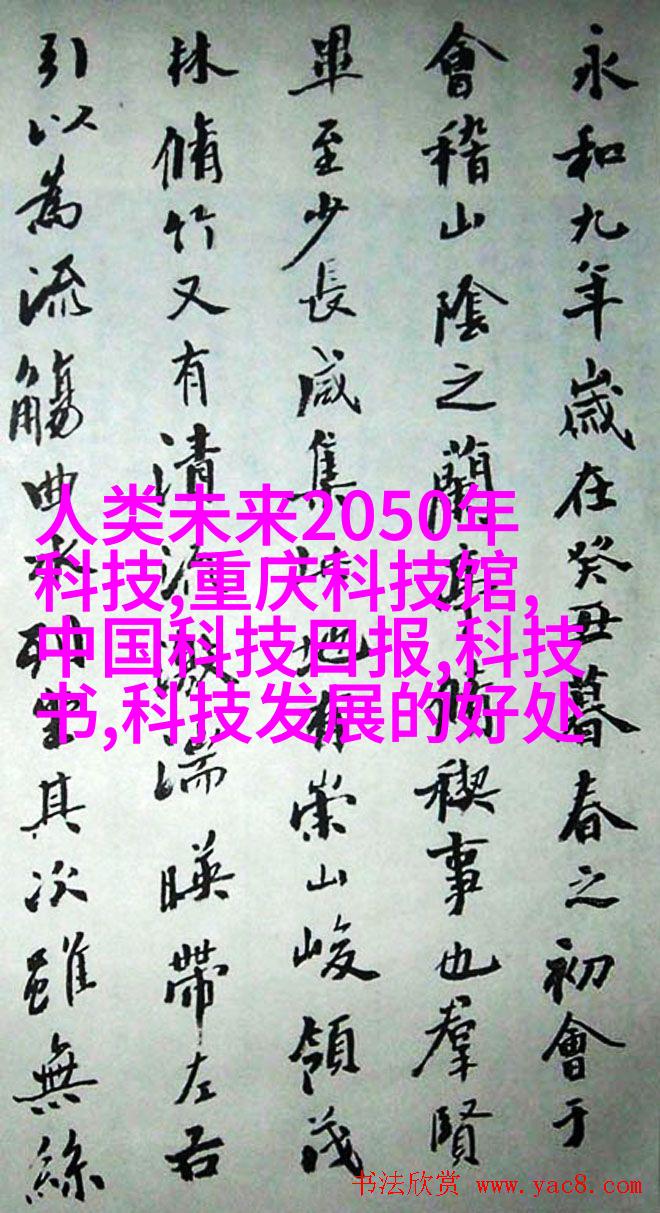 永和九年歲在癸丑暮春之初會于
會稽山陰之蘭亭脩稧事也羣賢
畢至少長咸集此地有崇山峻領茂
林脩竹又有清流激湍暎帶左右
引以為流觴曲水列坐其次雖無絲
人类未来2050年
科技,重庆科技馆,
中国科技日报,科技
书,科技发展的好处
书法欣赏 www.yac8.com